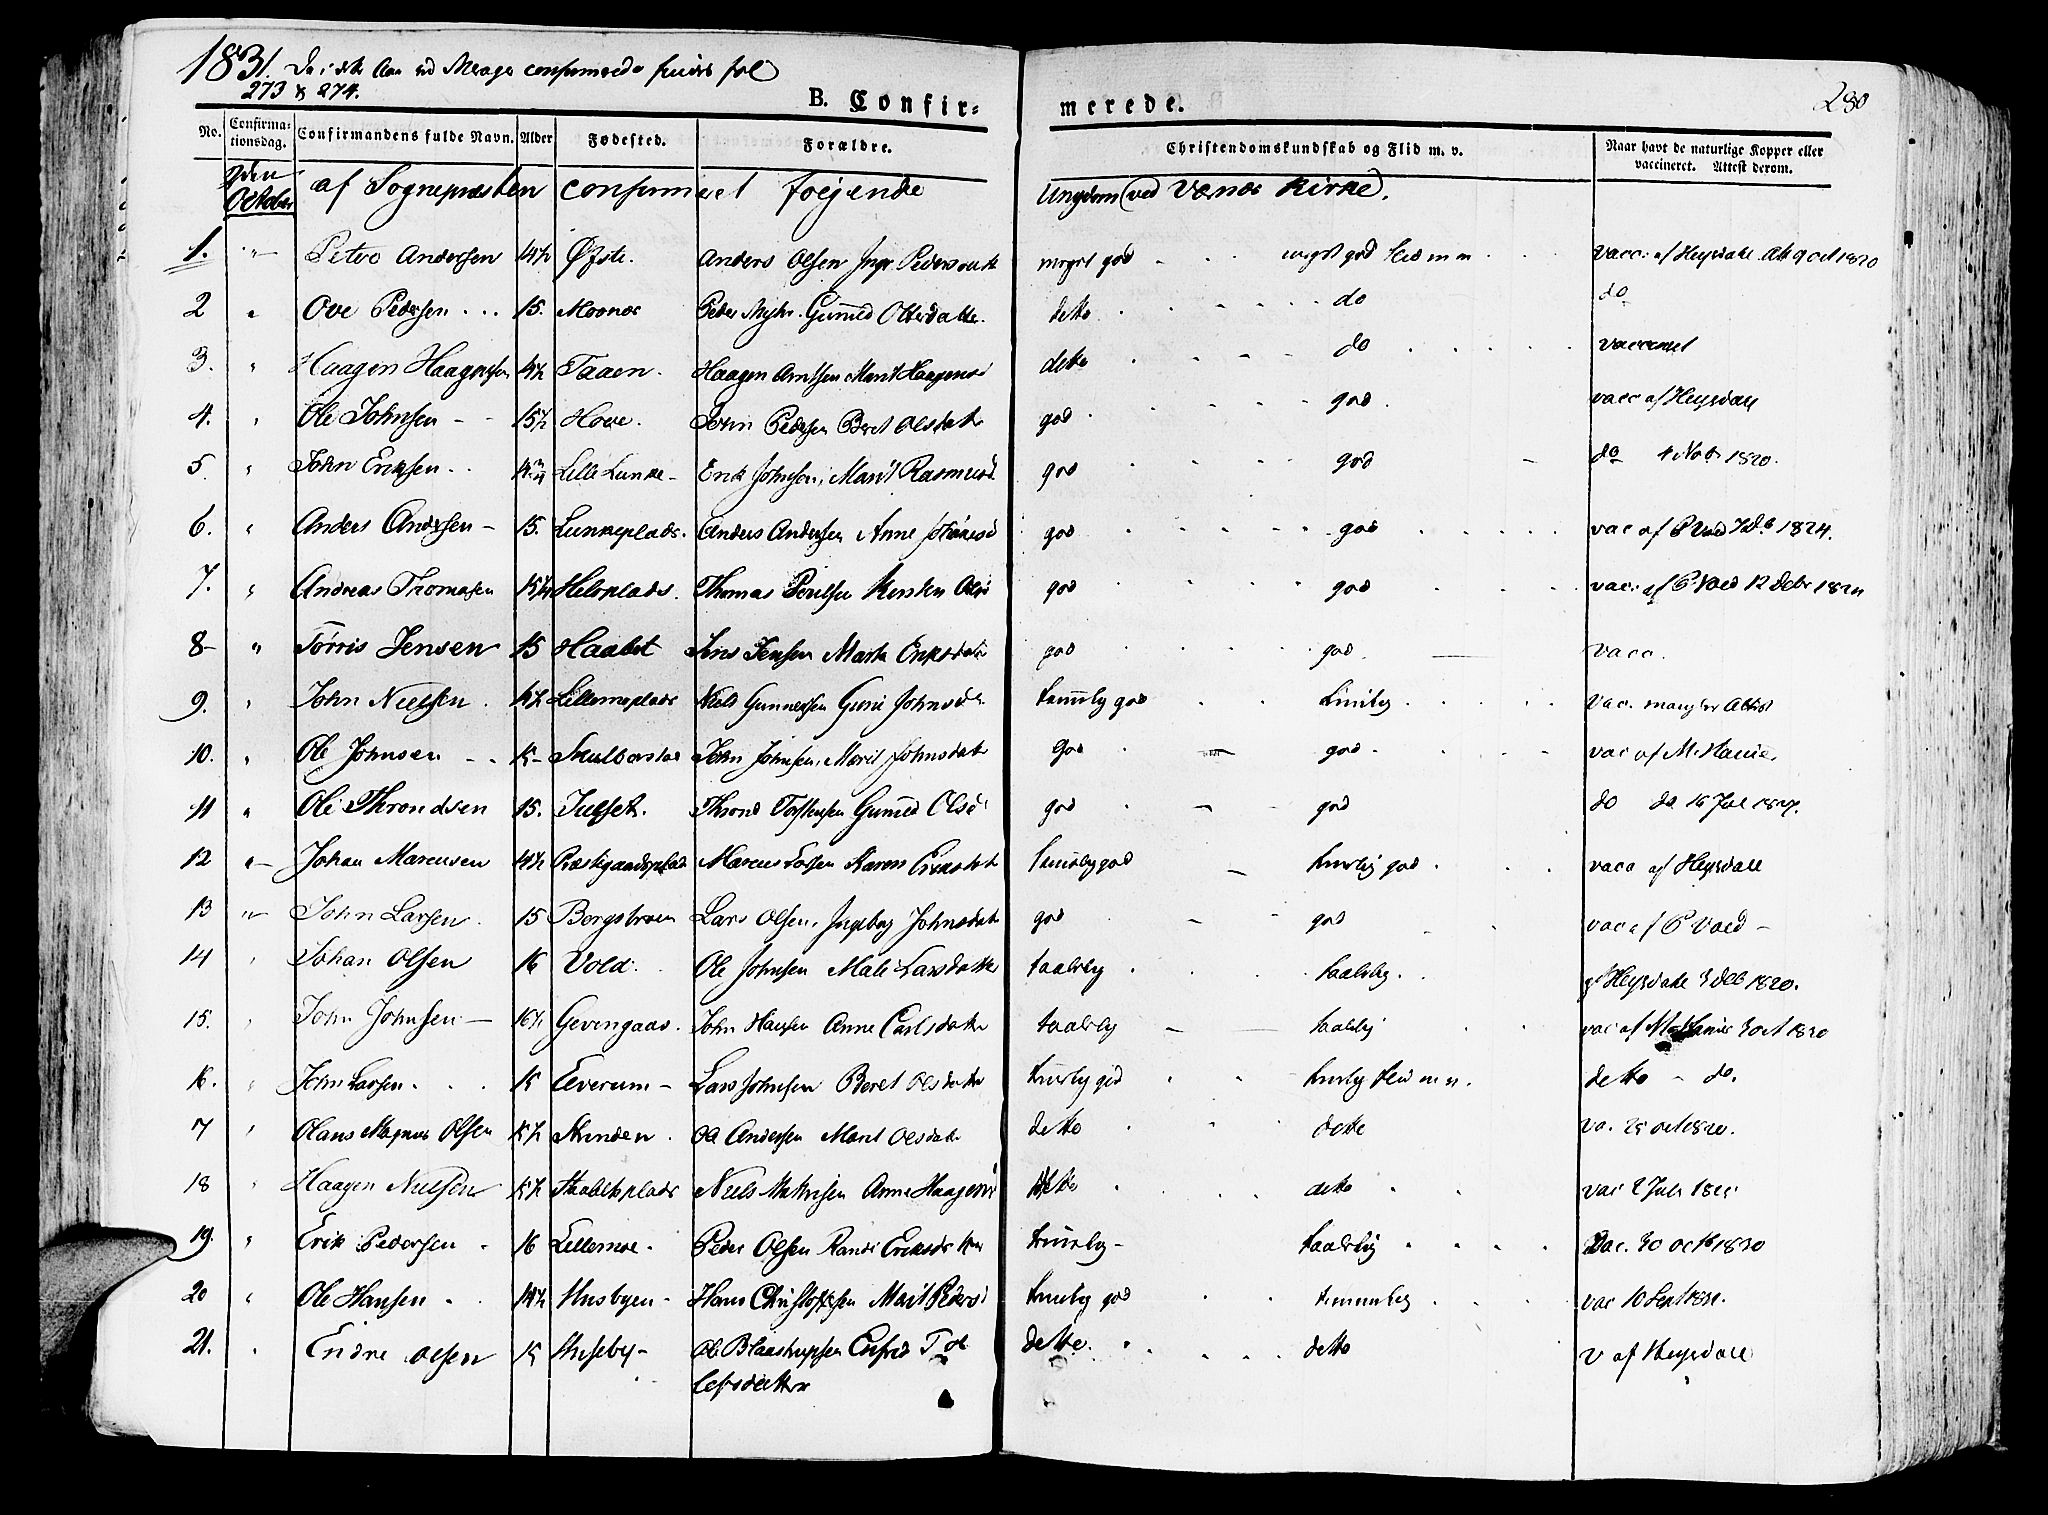 1831. De i dette Aar ved Meragr confirmerede findes fol
273 & 274.
280
B. Confirmerede.
No. Confirmationsdag. Confirmandens fulde Navn. Alder Fødested. Forældre. Christendomskundskab og Flid m. v. Naar havt de naturlige Kopper eller vaccineret. Attest derom.
October af Sognepræsten confirmeret følgende Ungdom ved Værnæs Kirke.
1. " Petro Andersen 14½ Øfste. Anders Olsen Ingr Pedersdatt meget god meget god Vacc. af Heysdahl. Att 9 oct 1820
2 " Ove Pedersen 15. Moonæs Peder Myhr. Guned Olsdatter. detto do do
3. " Haagen Haagensen 14½ Taaen. Haagen Arntsen Marit Haagensd detto do vaccineret
4. " Ole Johnsen 15½ Hove. John Pedersen Beret Olsdatr god god vacc af Heysdall
5 " John Eriksen Lille Lunke Erik Johnsen, Marit Rasmusd god god do 4 Nov 1820.
6. " Anders Andersen 15. Lunkeplads. Anders Andersen Anne god god vac af P Voed 1824.
7. " Andreas Thomasen Helvplads. Thomas Poulsen Kersten Olsd god god vacc af P. Voed 12 Debr
8 " Tørris Jensen 15 Haabet Jens Jensen Marta Eriksdatr god god vacc.
9. " John Nielsen 14½ Lillemoplads Niels Gunnersen Guru Johnsdr temmelig god temmelig Vac. mangler Attest
10. " Ole Johnsen 15 Skulbørstad John Johnsen, Marit Johnsdatr god god vac af M. Hanie.
11 " Ole Throndsen 15. Julset. Thrond Torstensen Guned Olsd god god do do 16 Jul
12 " Johan Marcusen 14½ Præstegaardsplads Marcus Larsen Karen Eriksdatt temmelig god temmelig god vacc af Heysdall
13 " John Larsen 15 Borgstrøen Lars Olsen, Ingeborg Johnsdatr god god vacc af P Voed
14 " Johan Olsen 16 Vold. Ole Johnsen Mali Larsdatter taalelig taalelig af Heysdale 9 deb 1820.
15. " John Johnsen 16½ Gevengaas. John Hansen Anne Carlsdatter taalelig taalelig vac af M Hanie 3 oct 1820
16. " John Larsen 15 Elverum Lars Johnsen Beret Olsdatter temmelig god temmelig detto do.
7 " Olaus Magnus Olsen 15½ Ole Andersen Marit Olsdatter detto dette va. 25 oct 1820.
18 " Haagen Nielsen 15½ Haabetsplads Niels Mathisen Anne Haagensd detto detto vac 2 July
19. " Erik Pedersen 16 Lillemoe Peder Olsen Randi Eriksdatter temmelig taalelig Vac. 30 octb 1820
20 " Ole Hansen 14½ Husbyen Hans Christophersen Marit Pedersd temmelig god temmelig vac 10 Sept
21. " Endre Olsen 15 Huseby Ole Blaastrupsen Enfred Tollefsdatter dette detto v af Heysdall